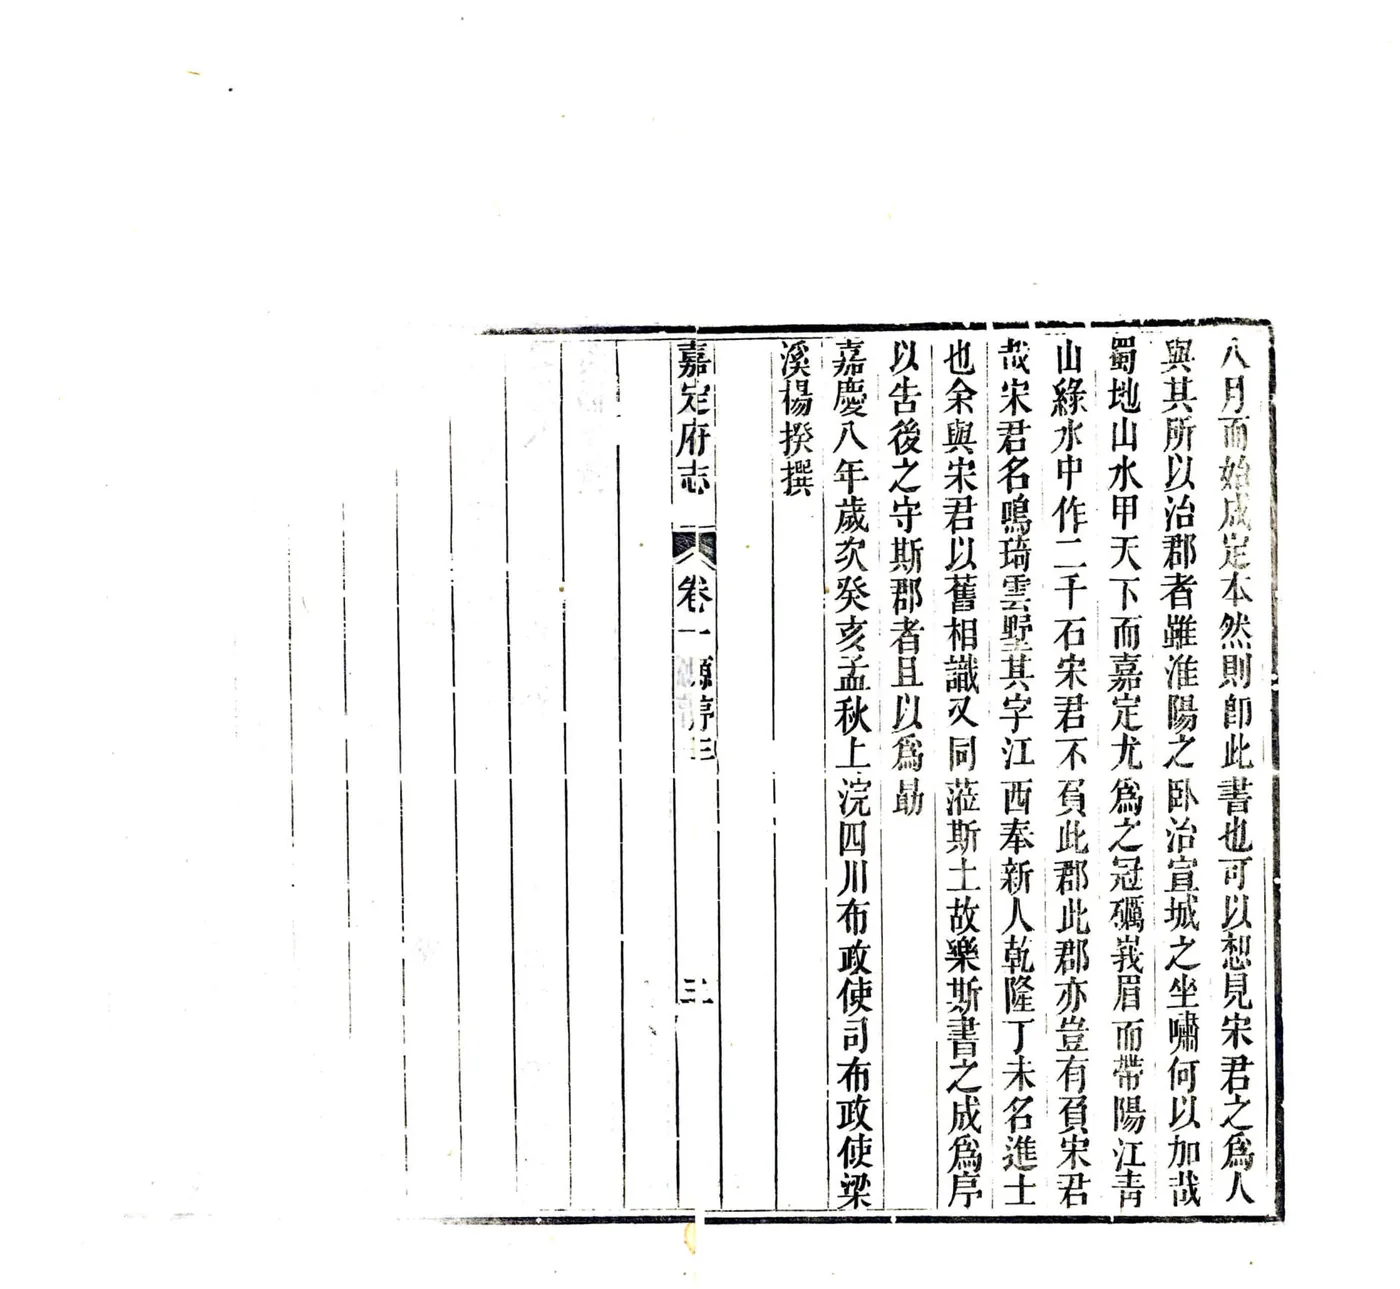 八月而始成定本然則卽此書也可以想見宋君之爲人
與其所以治郡者雖淮陽之卧治宣城之坐嘯何以加哉
蜀地山水甲天下而嘉定尤爲之冠礪峩眉而帶陽江青
山綠水中作二千石宋君不負此郡此郡亦豈有負宋君
哉宋君名鳴琦雲墅其字江西奉新人乾隆丁未名進士
也余與宋君以舊相識又同蒞斯土故樂斯書之成爲序
以告後之守斯郡者且以爲勗
嘉慶八年歲次癸亥孟秋上浣四川布政使司布政使梁
溪楊揆撰
嘉定府志 卷一 序 三